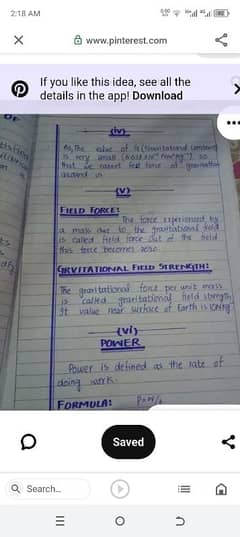 2:18 AM
www.pinterest.com
If you like this idea, see all the
details in the app! Download
(iv)
As, the value of G (Gravitational constant)
is very small
that we cannot feel force of gravitation
around us
(v)
FIELD FORCE:
The force experienced by
a mass due to the gravitational field
is called field force out of the field
this force becomes zero.
GRVITATIONAL FIELD STRENGTH:
The gravitational force per unit mass
is called gravitational field strength
It value near surface of Earth is 10Nkg⁻¹
(vi)
POWER
Power is defined as the rate of
doing work.
FORMULA: P=W/t
Saved
Search...